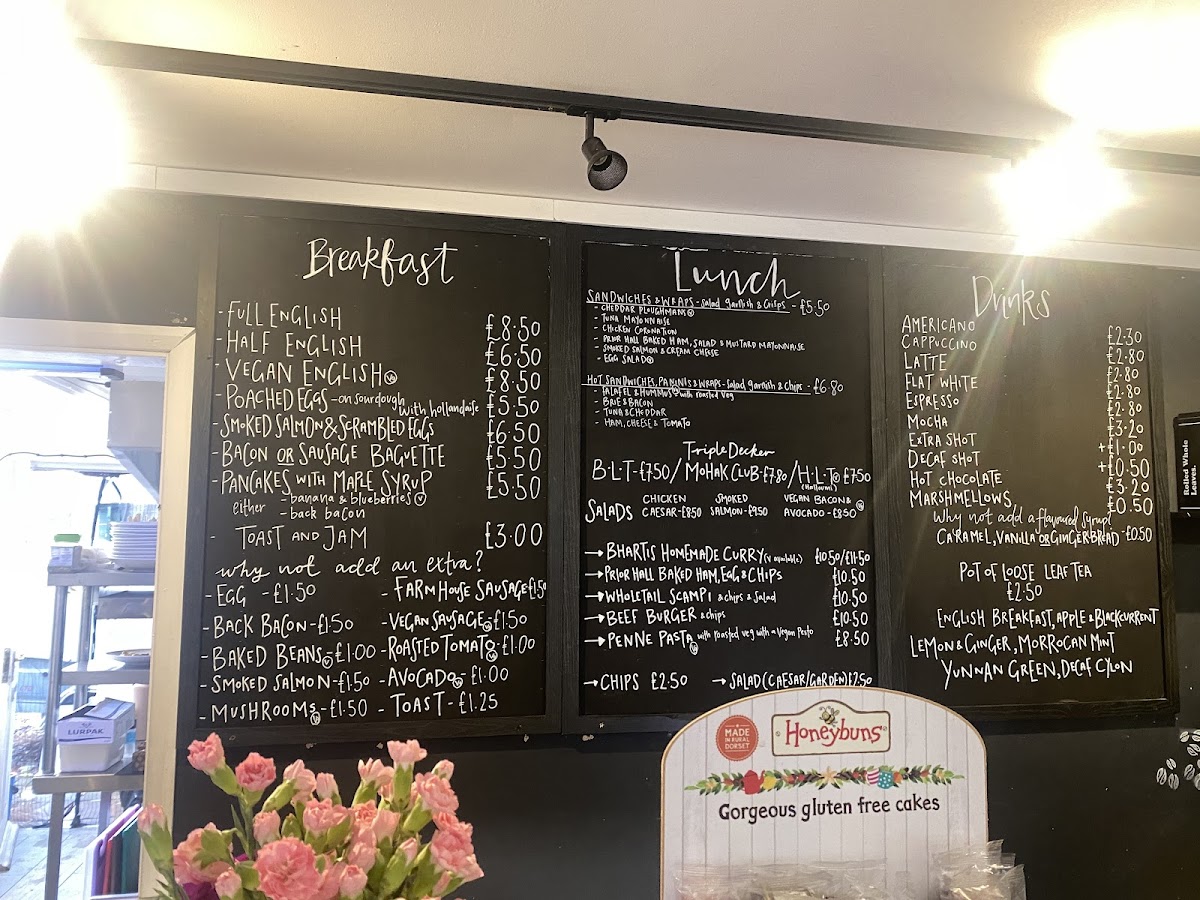 Breakfast
- FULL ENGLISH £8.50
- HALF ENGLISH £6.50
- VEGAN ENGLISH £8.50
- POACHED EGGS - on sourdough with hollandaise £5.50
- SMOKED SALMON & SCRAMBLED EGGS £6.50
- BACON OR SAUSAGE BAGUETTE £5.50
- PANCAKES WITH MAPLE SYRUP £5.50
either - banana & blueberries
- back bacon
- TOAST AND JAM £3.00
why not add an extra?
- EGG - £1.50 - FARMHOUSE SAUSAGE £1.50
- BACK BACON - £1.50 - VEGAN SAUSAGE £1.50
- BAKED BEANS - £1.00 - ROASTED TOMATO - £1.00
- SMOKED SALMON - £1.50 - AVOCADO - £1.00
- MUSHROOMS - £1.50 - TOAST - £1.25
Lunch
SANDWICHES & WRAPS - salad garnish & crisps - £5.50
- CHEDDAR PLOUGHMANS
- TUNA MAYONNAISE
- CHICKEN CORONATION
- PRIOR HALL BAKED HAM, SALAD & MUSTARD MAYONNAISE
- SMOKED SALMON & CREAM CHEESE
- EGG SALAD
HOT SANDWICHES, PANINIS & WRAPS - salad garnish & chips - £6.80
- FALAFEL & HUMMUS with roasted veg
- BRIE & BACON
- TUNA & CHEDDAR
- HAM, CHEESE & TOMATO
Triple Decker
B·L·T - £7.50 / MOHAK CLUB - £7.80 / H·L·T £7.50
(Halloumi)
SALADS CHICKEN CAESAR - £8.50 SMOKED SALMON - £9.50 VEGAN BACON & AVOCADO - £8.50
→ BHARTIS HOMEMADE CURRY (V available) £10.50/£11.50
→ PRIOR HALL BAKED HAM, EGG & CHIPS £10.50
→ WHOLETAIL SCAMPI & chips & salad £10.50
→ BEEF BURGER & chips £10.50
→ PENNE PASTA with roasted veg with a Vegan Pesto £8.50
→ CHIPS £2.50 → SALAD (CAESAR/GARDEN) £2.50
Drinks
AMERICANO £2.30
CAPPUCCINO £2.80
LATTE £2.80
FLAT WHITE £2.80
ESPRESSO £2.80
MOCHA £3.20
EXTRA SHOT +£1.00
DECAF SHOT +£0.50
HOT CHOCOLATE £3.20
MARSHMELLOWS £0.50
Why not add a flavoured syrup
CARAMEL, VANILLA OR GINGERBREAD - £0.50
POT OF LOOSE LEAF TEA
£2.50
ENGLISH BREAKFAST, APPLE & BLACKCURRENT
LEMON & GINGER, MORROCAN MINT
YUNNAN GREEN, DECAF CYLON
Rolled Whole
Leaves.
LURPAK
MADE
IN RURAL
DORSET
Honeybuns
Gorgeous gluten free cakes